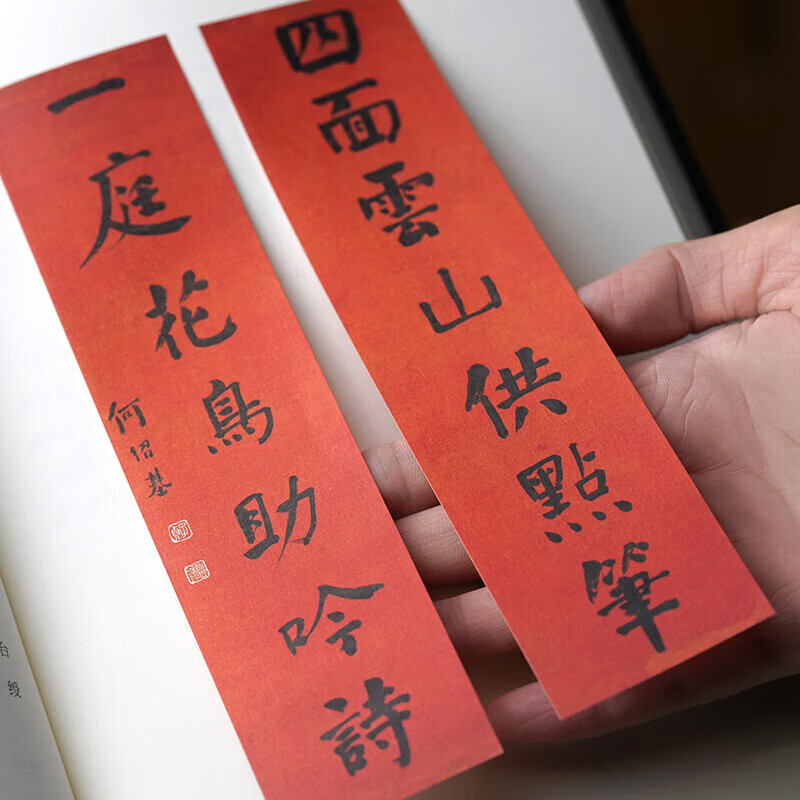 四面雲山供點筆
一庭花鳥助吟詩
何紹基